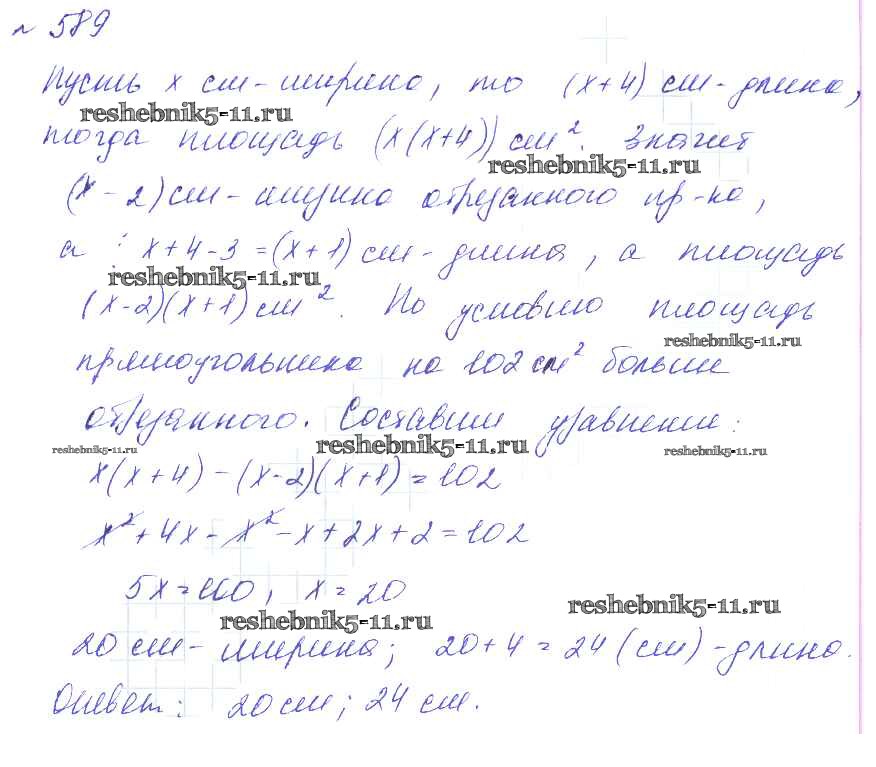 № 589
Пусть x см - ширина, то (x+4) см - длина,
reshebnik5-11.ru
тогда площадь (x(x+4)) см². Значит
reshebnik5-11.ru
(x-2) см - ширина отрезанного пр-ка,
а x+4-3=(x+1) см - длина, а площадь
reshebnik5-11.ru
(x-2)(x+1) см². По условию площадь
reshebnik5-11.ru
прямоугольника на 102 см² больше
отрезанного. Составим уравнение:
reshebnik5-11.ru reshebnik5-11.ru reshebnik5-11.ru
x(x+4)-(x-2)(x+1)=102
x²+4x-x²-x+2x+2=102
5x=100, x=20
reshebnik5-11.ru reshebnik5-11.ru
20 см - ширина; 20+4=24 (см) - длина.
Ответ: 20 см; 24 см.